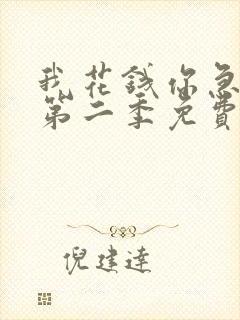 我花錢你急
第二季免費
倪建達